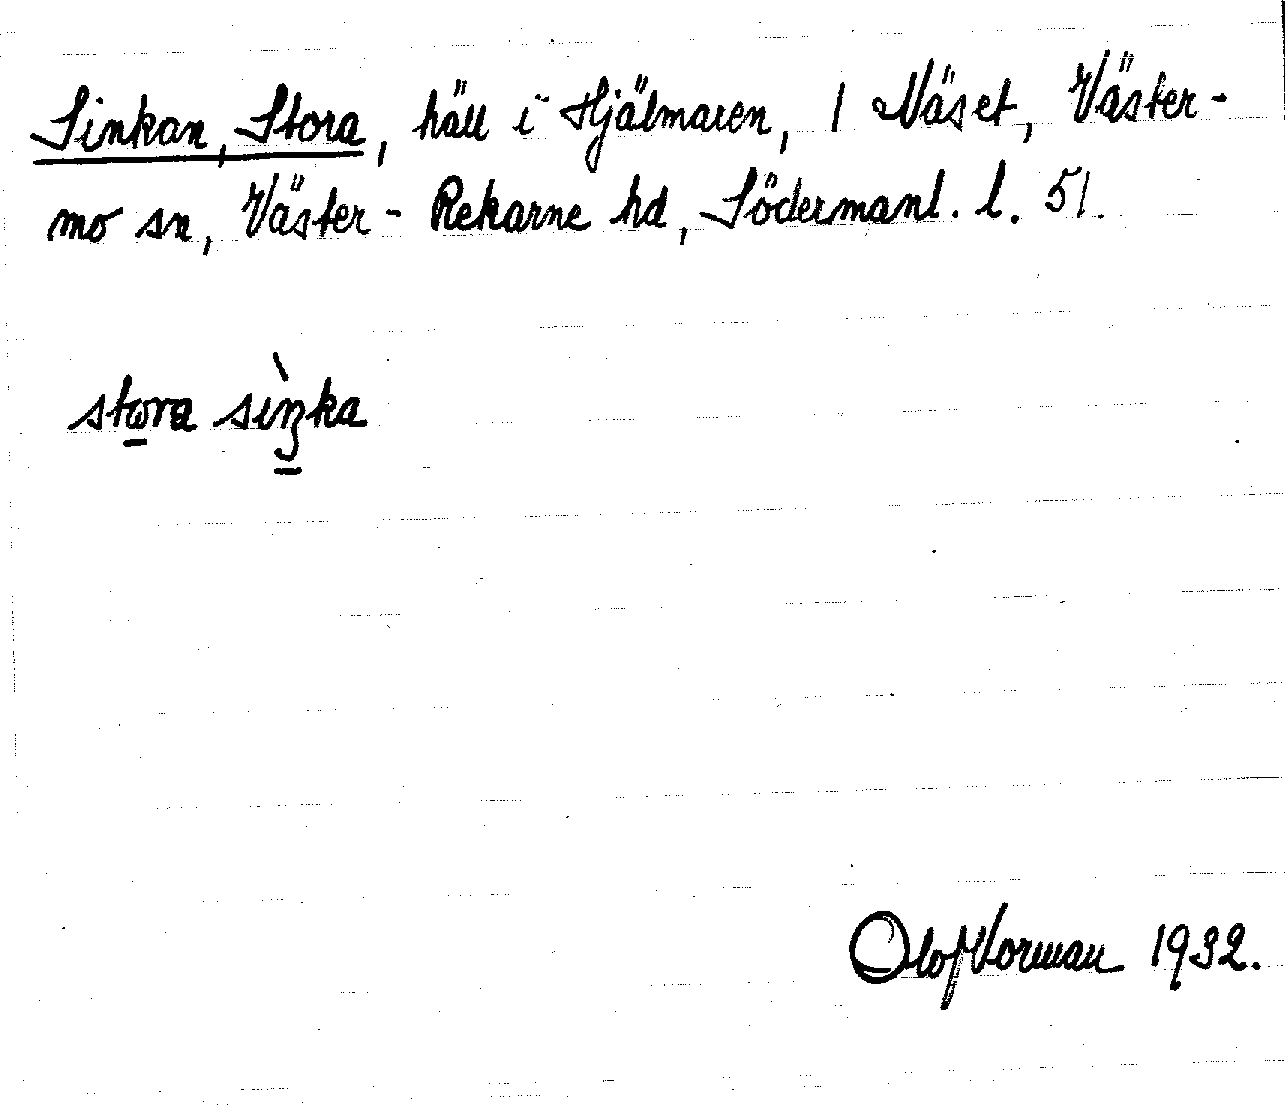 Sinkan, Stora, häll i Hjälmaren, 1 Näset, Väster-
mo sn, Väster-Rekarne hd, Södermanl. l. 51.
stora sìŋka
Olof Norman 1932.